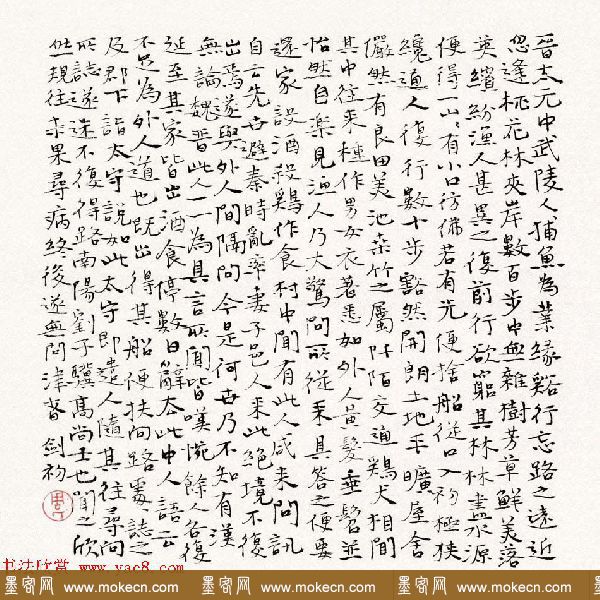 晉太元中武陵人捕魚為業緣谿行忘路之遠近
忽逢桃花林夾岸數百步中無雜樹芳草鮮美落
英繽紛漁人甚異之復前行欲窮其林林盡水源
便得一山山有小口彷彿若有光便捨船從口入初極狹
纔通人復行數十步豁然開朗土地平曠屋舍
儼然有良田美池桑竹之屬阡陌交通鷄犬相聞
其中往來種作男女衣著悉如外人黃髮垂髫並
怡然自樂見漁人乃大驚問所從來具答之便要
還家設酒殺鷄作食村中聞有此人咸來問訊
自云先世避秦時亂率妻子邑人來此絕境不復
出焉遂與外人間隔問今是何世乃不知有漢
無論魏晉此人一一為具言所聞皆嘆惋餘人各復
延至其家皆出酒食停數日辭去此中人語云
不足為外人道也既出得其船便扶向路處處誌之
及郡下詣太守說如此太守即遣人隨其往尋向
所誌遂迷不復得路南陽劉子驥高尚士也聞之欣
然規往未果尋病終後遂無問津者 劍初
书法欣赏 www.yac8.com
墨客网 www.mokecn.com 墨客网 www.mokecn.com 墨客网 www.mokecn.com